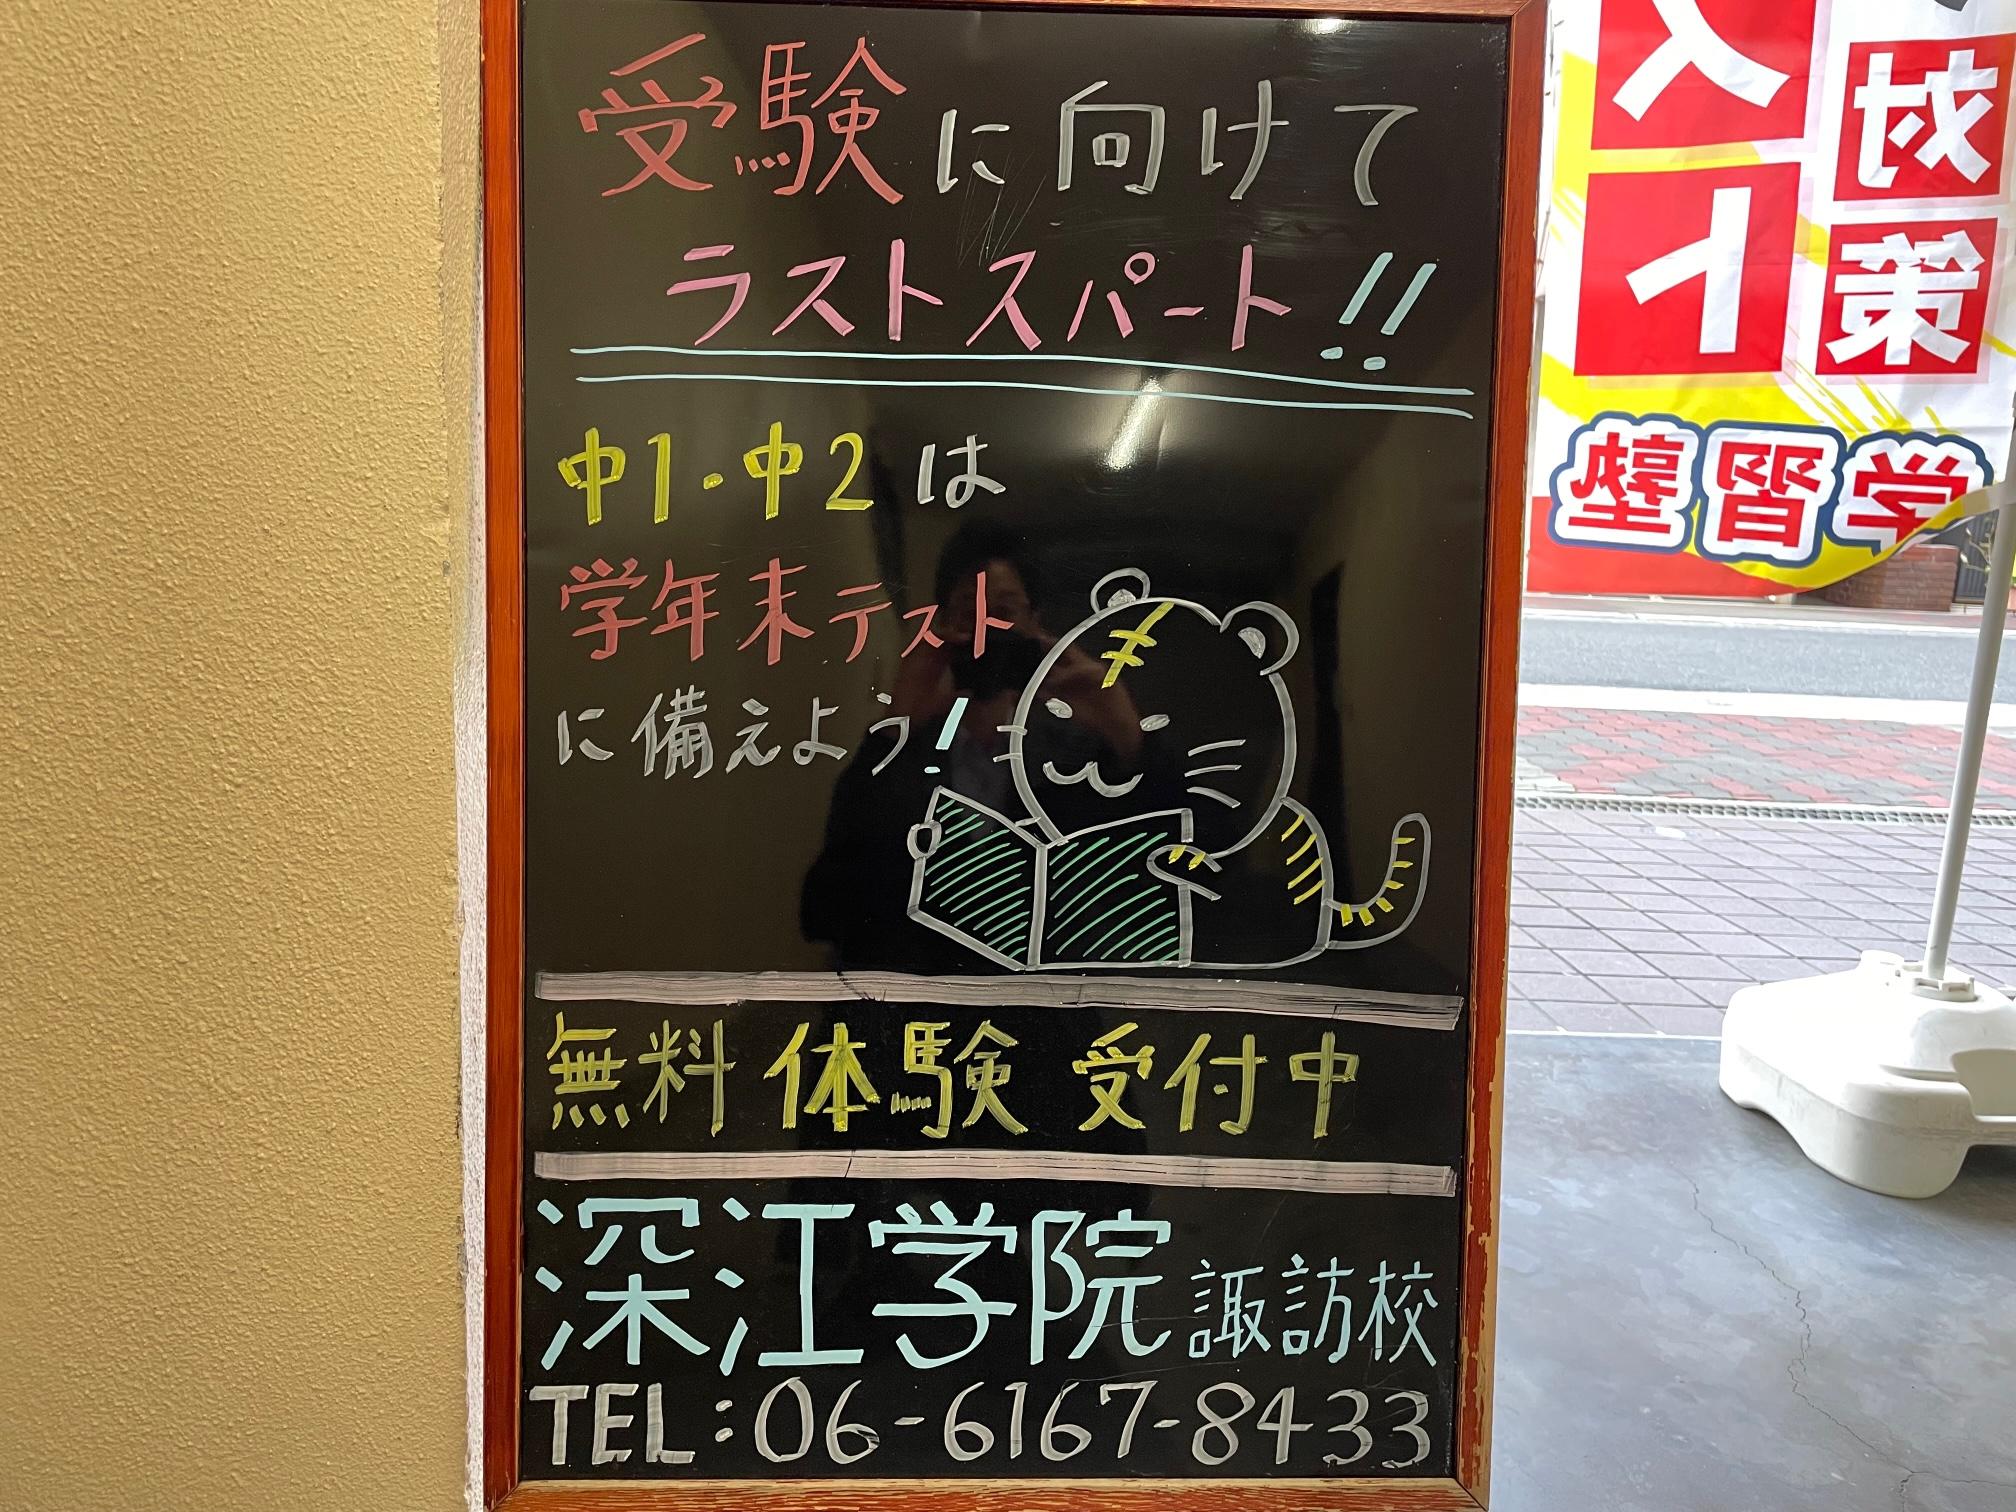 受験に向けて
ラストスパート!!
中1・中2は
学年末テスト
に備えよう!
無料体験受付中
深江学院 諏訪校
TEL:06-6167-8433
スト
対策
学習塾